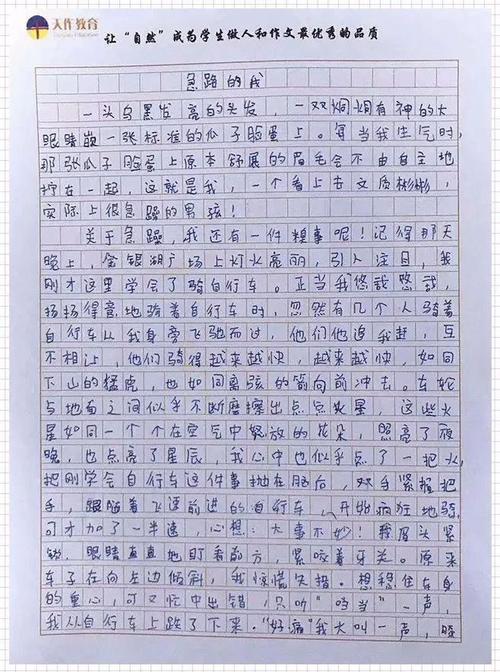 天作教育
让“自然”成为学生做人和作文最优秀的品质
急躁的我
一头乌黑发亮的头发，一双炯炯有神的大
眼睛嵌一张标准的瓜子脸蛋上。每当我生气时，
那张瓜子脸蛋上原本舒展的眉毛会不由自主地
拧在一起，这就是我，一个看上去文质彬彬，
实际上很急躁的男孩！
关于急躁，我还有一件糗事呢！记得那天
晚上，金银湖广场上灯火亮丽，引人注目，我
刚才这里学会了骑自行车。正当我悠哉悠哉，
扬扬得意地骑着自行车时，忽然有几个人骑着
自行车从我身旁飞驰而过，他们你追我赶，互
不相让，他们骑得越来越快，越来越快，如同
下山的猛虎，也如同离弦的箭向前冲去。车轮
与地面之间似乎不断磨擦出点点火星，这些火
星如同一个个在空气中怒放的花朵，照亮了夜
晚，也点亮了星辰，我心中也似乎点了一把火，
把刚学会自行车这件事抛在脑后，双手紧握把
手，跟随着飞速前进的自行车，开始疯狂地骑，
可才加了一半速，心想：大事不妙！我眉头紧
锁，眼睛直直地盯着前方，紧咬着牙关。原来
车子在向左边倾斜，我惊慌失措。想稳住车身
的重心，可又忙中出错，只听“哐当”一声，
我从自行车上跌了下来。“好痛”我大叫一声，